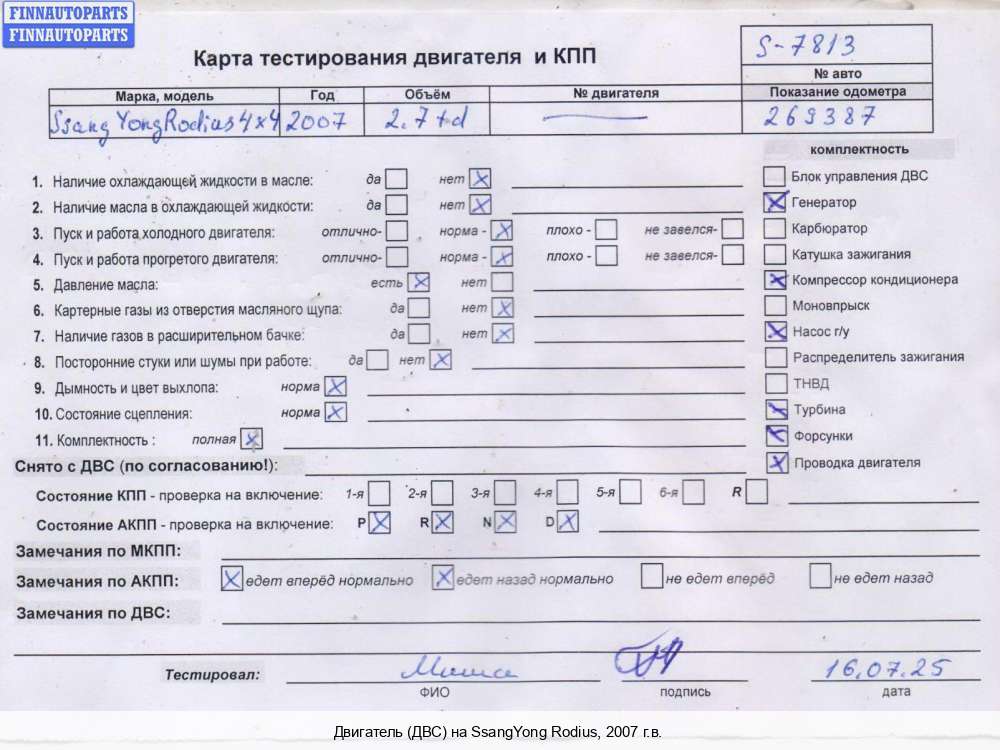 FINNAUTOPARTS
FINNAUTOPARTS
Карта тестирования двигателя и КПП
S-7813
№ авто
Марка, модель Год Объём № двигателя Показание одометра
Ssang Yong Rodius 4x4 2007 2.7td 269387
комплектность
1. Наличие охлаждающей жидкости в масле: да нет Блок управления ДВС
2. Наличие масла в охлаждающей жидкости: да нет Генератор
3. Пуск и работа холодного двигателя: отлично- норма - плохо - не завелся- Карбюратор
4. Пуск и работа прогретого двигателя: отлично- норма - плохо - не завелся- Катушка зажигания
5. Давление масла: есть нет Компрессор кондиционера
6. Картерные газы из отверстия масляного щупа: да нет Моновпрыск
7. Наличие газов в расширительном бачке: да нет Насос г/у
8. Посторонние стуки или шумы при работе: да нет Распределитель зажигания
9. Дымность и цвет выхлопа: норма ТНВД
10. Состояние сцепления: норма Турбина
11. Комплектность : полная Форсунки
Снято с ДВС (по согласованию!): Проводка двигателя
Состояние КПП - проверка на включение: 1-я 2-я 3-я 4-я 5-я 6-я R
Состояние АКПП - проверка на включение: P R N D
Замечания по МКПП:
Замечания по АКПП: едет вперёд нормально едет назад нормально не едет вперёд не едет назад
Замечания по ДВС:
Тестировал: Миша 16.07.25
ФИО подпись дата
Двигатель (ДВС) на SsangYong Rodius, 2007 г.в.